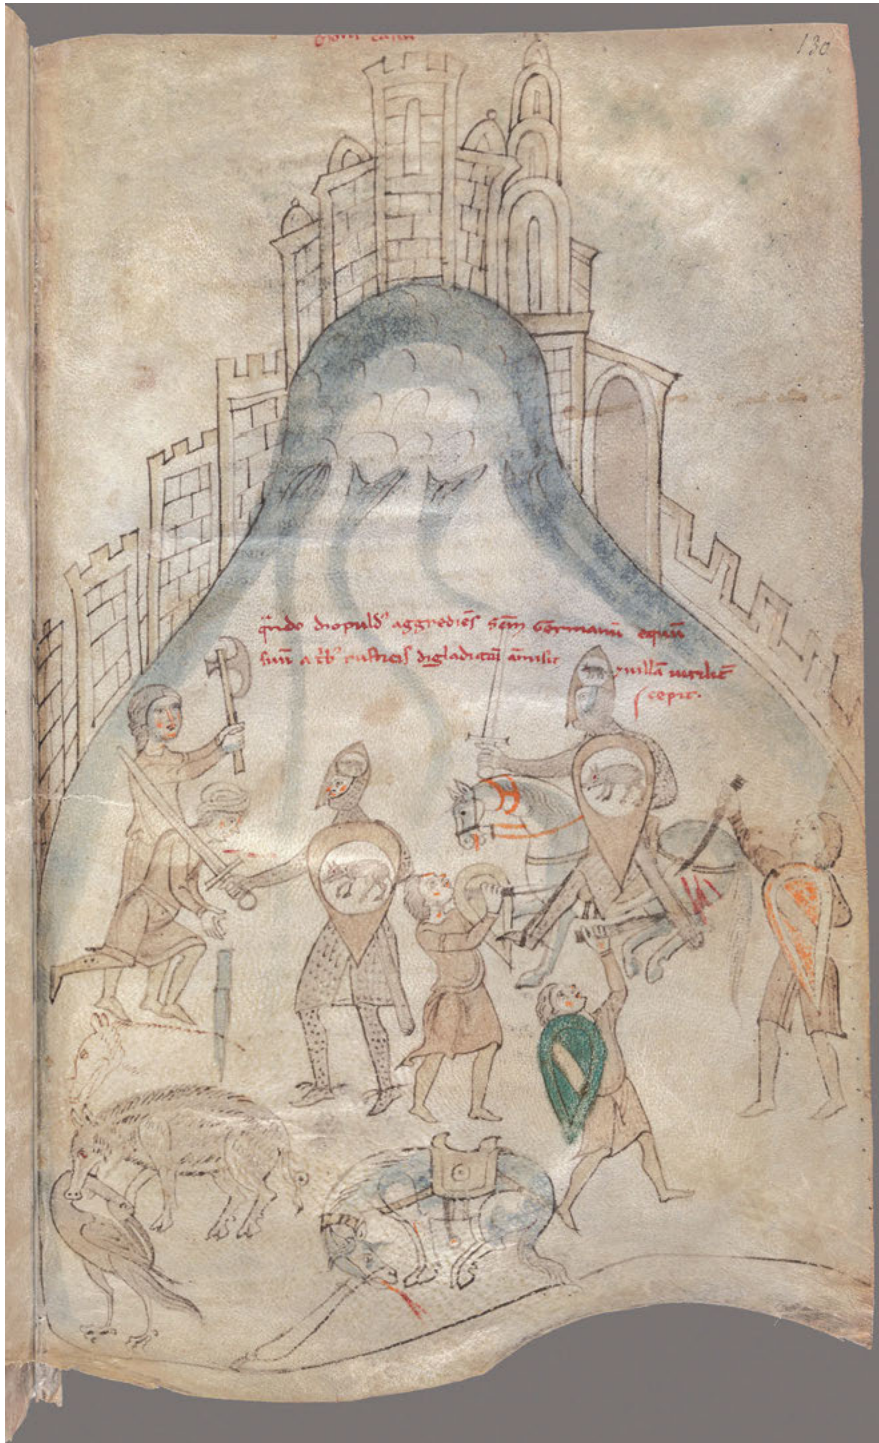 130
qn̄do diopuld᾽ aggrediēs scm̄ Germanū equū
suū a t͛b᾽ rusticis digladiatū amisit
⁊ villā virilit̄
cepit.